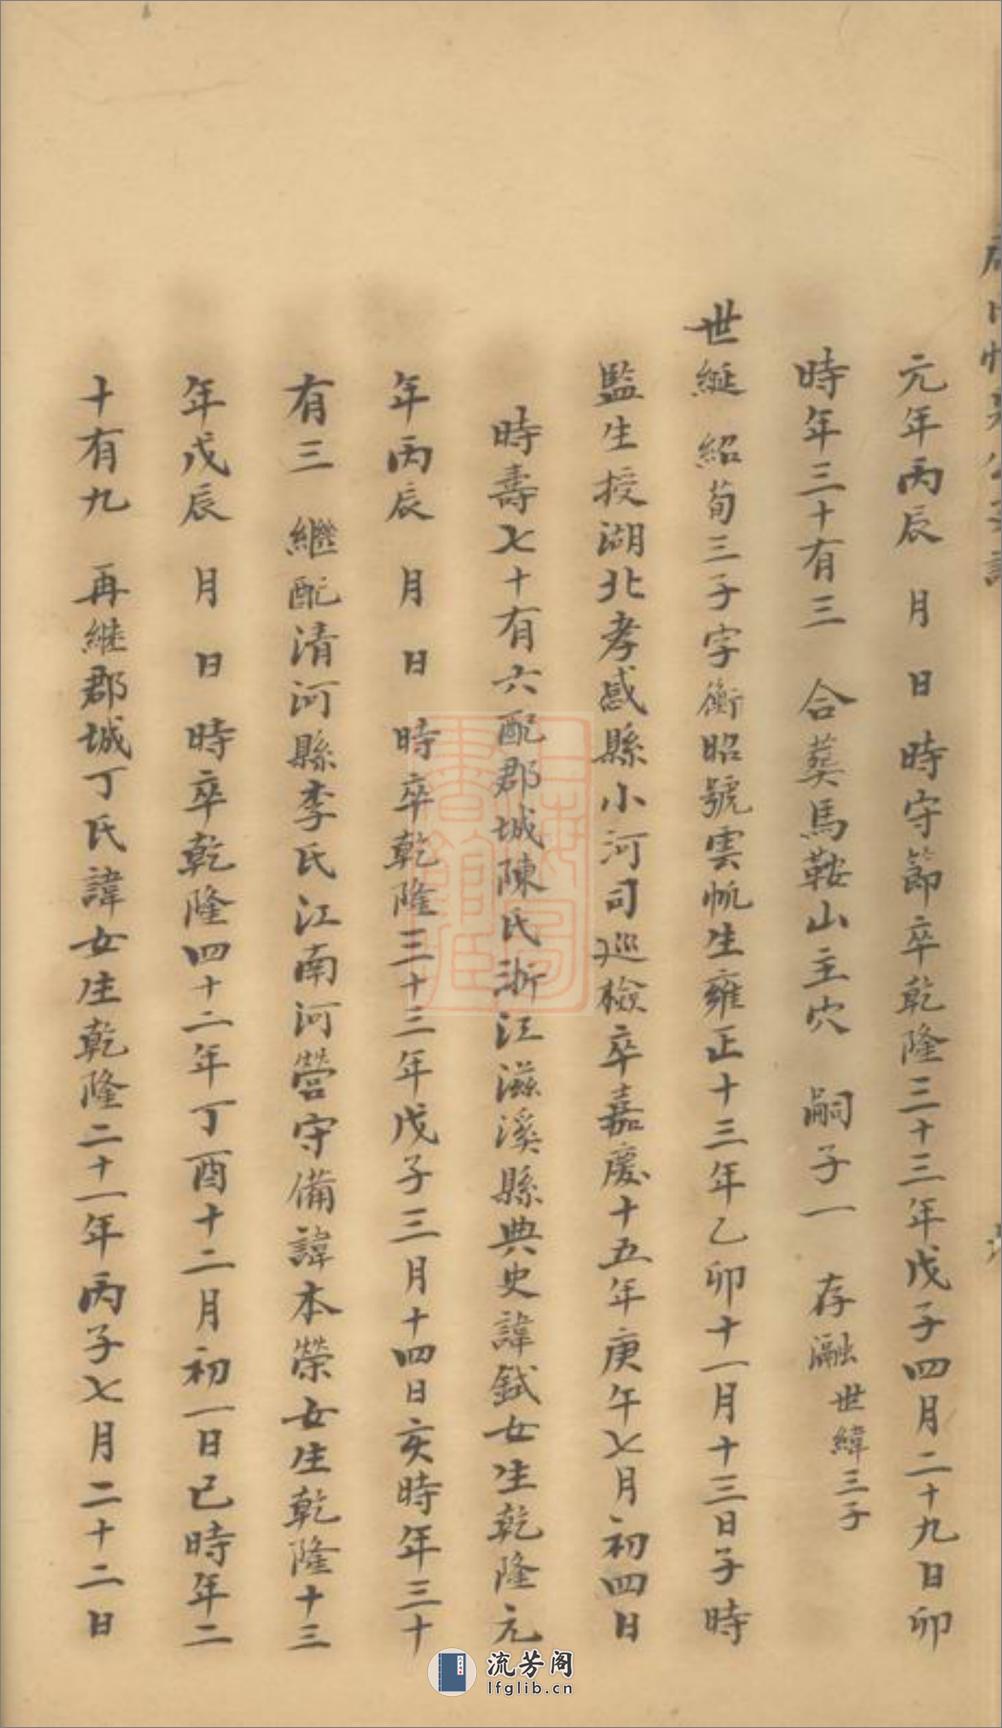 元年丙辰　月　日　時守節卒乾隆三十三年戊子四月二十九日卯
時年三十有三　合葬馬鞍山主穴　嗣子一　存瀜世緯三子
世綖　紹荀三子字衡昭號雲帆生雍正十三年乙卯十一月十三日子時
監生授湖北孝感縣小河司巡檢卒嘉慶十五年庚午七月初四日
時壽七十有六配郡城陳氏浙江滋溪縣典史諱鉽女生乾隆元
年丙辰　月　日　時卒乾隆三十三年戊子三月十四日亥時年三十
有三　繼配清河縣李氏江南河營守備諱本榮女生乾隆十三
年戊辰　月　日　時卒乾隆四十二年丁酉十二月初一日巳時年二
十有九　再繼郡城丁氏諱女生乾隆二十一年丙子七月二十二日
流芳阁
lfglib.cn